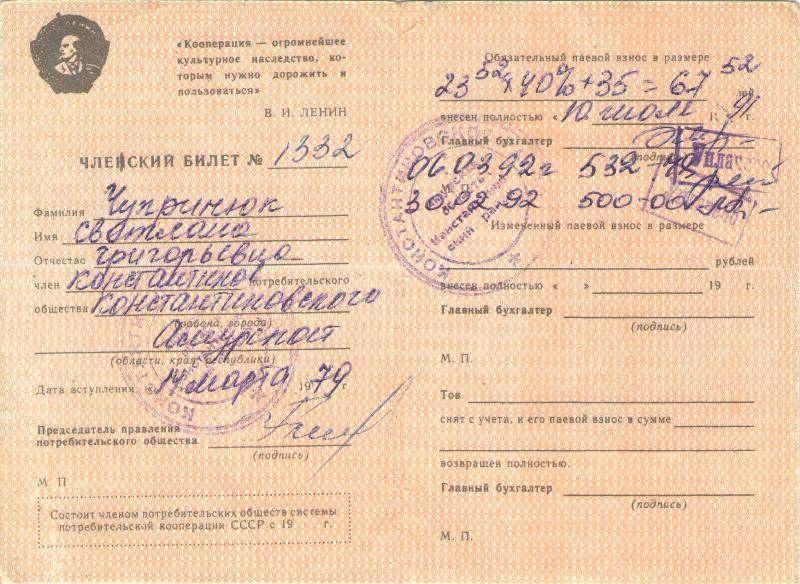 «Кооперация — огромнейшее
культурное наследство, ко-
торым нужно дорожить и
пользоваться»
В. И. ЛЕНИН
ЧЛЕНСКИЙ БИЛЕТ № 1332
Фамилия Чупринюк
Имя Светлана
Отчество Григорьевна
член Константинов потребительского
общества Константиновского
(района, города)
Амурской
(области, края, республики)
Дата вступления 14 марта 1979 г.
Председатель правления
потребительского общества
(подпись)
М. П
Состоит членом потребительских обществ системы
потребительской кооперации СССР с 19 г.
Обязательный паевой взнос в размере
23 52 + 40% + 35 = 67 52
внесен полностью « 10 июля 91 г.
Главный бухгалтер
(подпись)
06.03.92 г 532
92 500-00
Измененный паевой взнос в размере
рублей
внесен полностью « » 19 г.
Главный бухгалтер
(подпись)
М. П.
Тов
снят с учета, и его паевой взнос в сумме
возвращен полностью.
Главный бухгалтер
(подпись)
М. П.